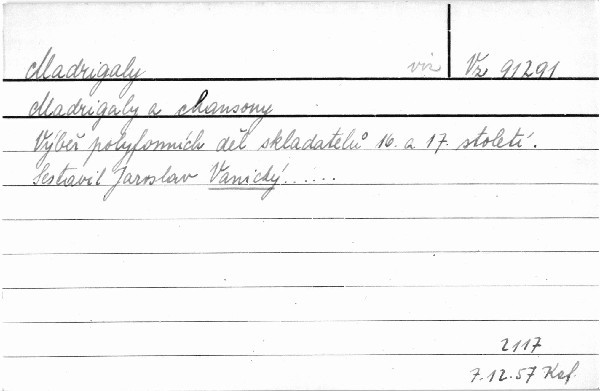 Madrigaly viz Vz 91291
Madrigaly a chansony
Výběr polyfonních děl skladatelů 16. a 17. století.
Sestavil Jaroslav Vanický......
2117
7.12.57 Kaf.